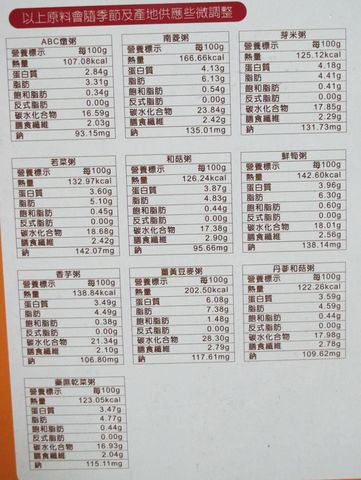 以上原料會隨季節及產地供應些微調整
ABC燉粥
營養標示 每100g
熱量 107.08kcal
蛋白質 2.84g
脂肪 3.31g
飽和脂肪 0.34g
反式脂肪 0.00g
碳水化合物 16.59g
膳食纖維 2.03g
鈉 93.15mg
南菱粥
營養標示 每100g
熱量 166.66kcal
蛋白質 4.13g
脂肪 6.13g
飽和脂肪 0.54g
反式脂肪 0.00g
碳水化合物 23.84g
膳食纖維 2.42g
鈉 135.01mg
芽米粥
營養標示 每100g
熱量 125.12kcal
蛋白質 4.18g
脂肪 4.41g
飽和脂肪 0.41g
反式脂肪 0.00g
碳水化合物 17.85g
膳食纖維 2.29g
鈉 131.73mg
若菜粥
營養標示 每100g
熱量 132.97kcal
蛋白質 3.60g
脂肪 5.10g
飽和脂肪 0.45g
反式脂肪 0.00g
碳水化合物 18.68g
膳食纖維 2.42g
鈉 142.07mg
和菇粥
營養標示 每100g
熱量 126.24kcal
蛋白質 3.87g
脂肪 4.83g
飽和脂肪 0.44g
反式脂肪 0.00g
碳水化合物 17.38g
膳食纖維 2.90g
鈉 95.66mg
鮮筍粥
營養標示 每100g
熱量 142.60kcal
蛋白質 3.96g
脂肪 6.30g
飽和脂肪 0.60g
反式脂肪 0.00g
碳水化合物 18.01g
膳食纖維 2.56g
鈉 138.14mg
香芋粥
營養標示 每100g
熱量 138.84kcal
蛋白質 3.49g
脂肪 4.49g
飽和脂肪 0.38g
反式脂肪 0.00g
碳水化合物 21.34g
膳食纖維 2.10g
鈉 106.80mg
薑黃豆麥粥
營養標示 每100g
熱量 202.50kcal
蛋白質 6.08g
脂肪 7.38g
飽和脂肪 1.48g
反式脂肪 0.00g
碳水化合物 28.30g
膳食纖維 2.79g
鈉 117.61mg
丹蔘和菇粥
營養標示 每100g
熱量 122.26kcal
蛋白質 3.59g
脂肪 4.59g
飽和脂肪 0.44g
反式脂肪 0.00g
碳水化合物 17.98g
膳食纖維 2.78g
鈉 109.62mg
藥膳乾菜粥
營養標示 每100g
熱量 123.05kcal
蛋白質 3.47g
脂肪 4.77g
飽和脂肪 0.44g
反式脂肪 0.00g
碳水化合物 16.93g
膳食纖維 2.04g
鈉 115.11mg